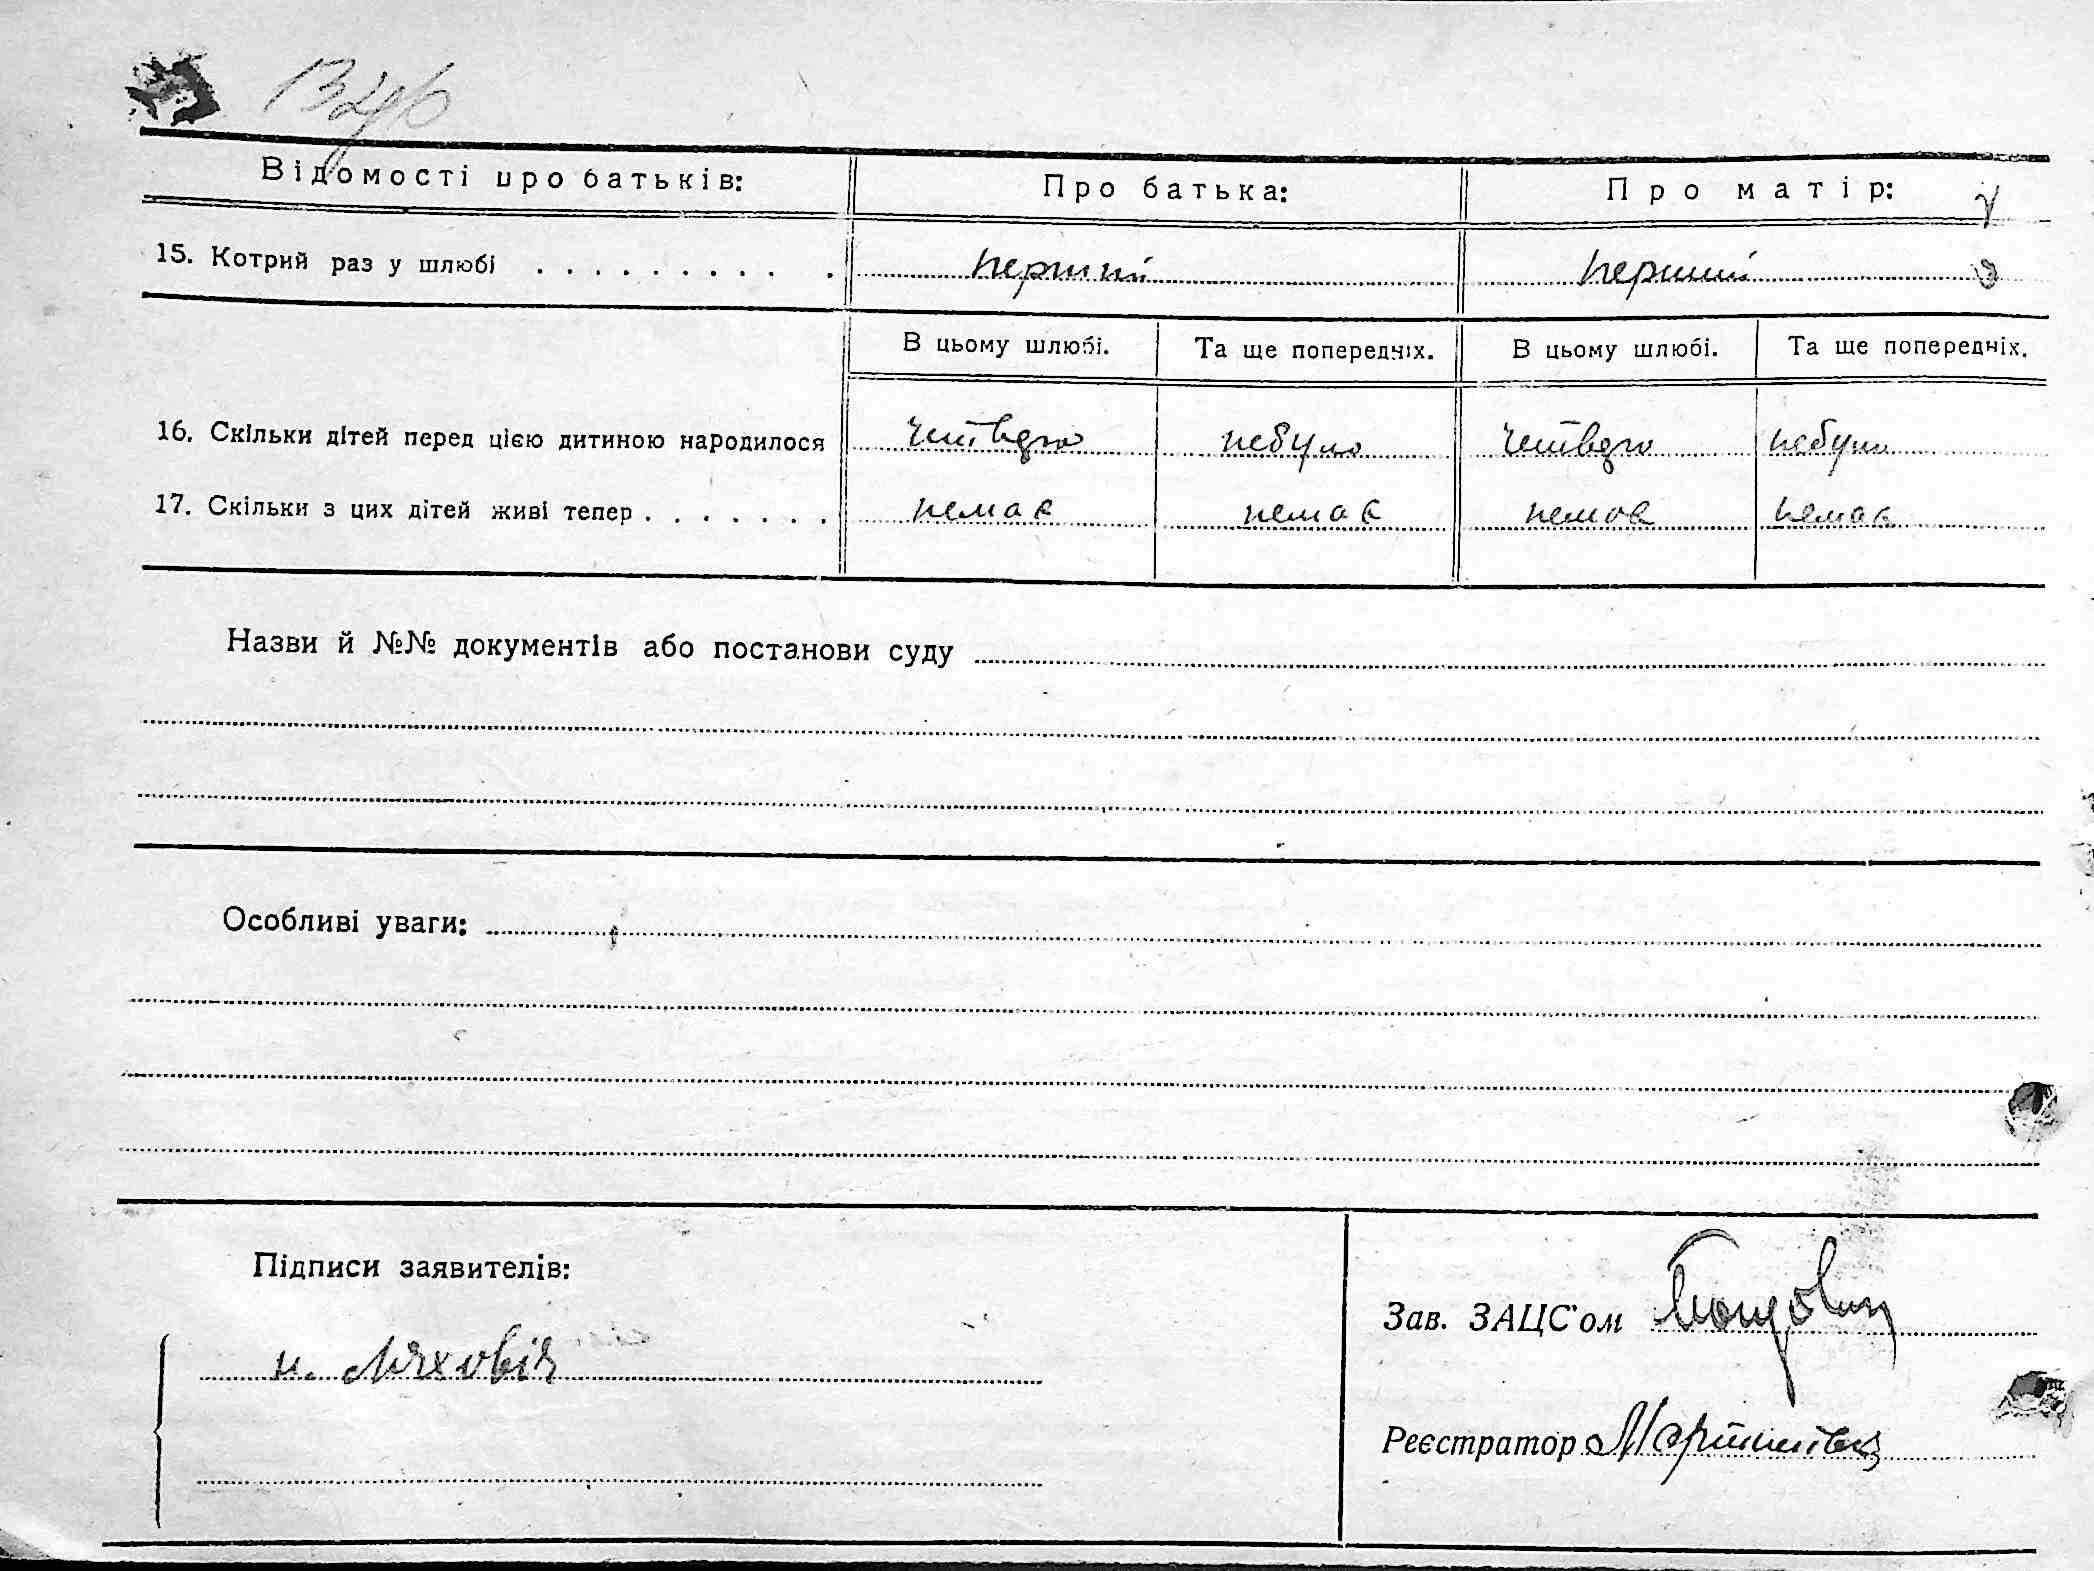 Відомості про батьків: Про батька: Про матір:
15. Котрий раз у шлюбі . . . . . . . . . . перший перший
В цьому шлюбі. Та ще попередніх. В цьому шлюбі. Та ще попередніх.
16. Скільки дітей перед цією дитиною народилося четверо небуло четверо небуло
17. Скільки з цих дітей живі тепер . . . . . . . немає немає немає немає
Назви й №№ документів або постанови суду
Особливі уваги:
Підписи заявителів:
Зав. ЗАЦС'ом
Реєстратор